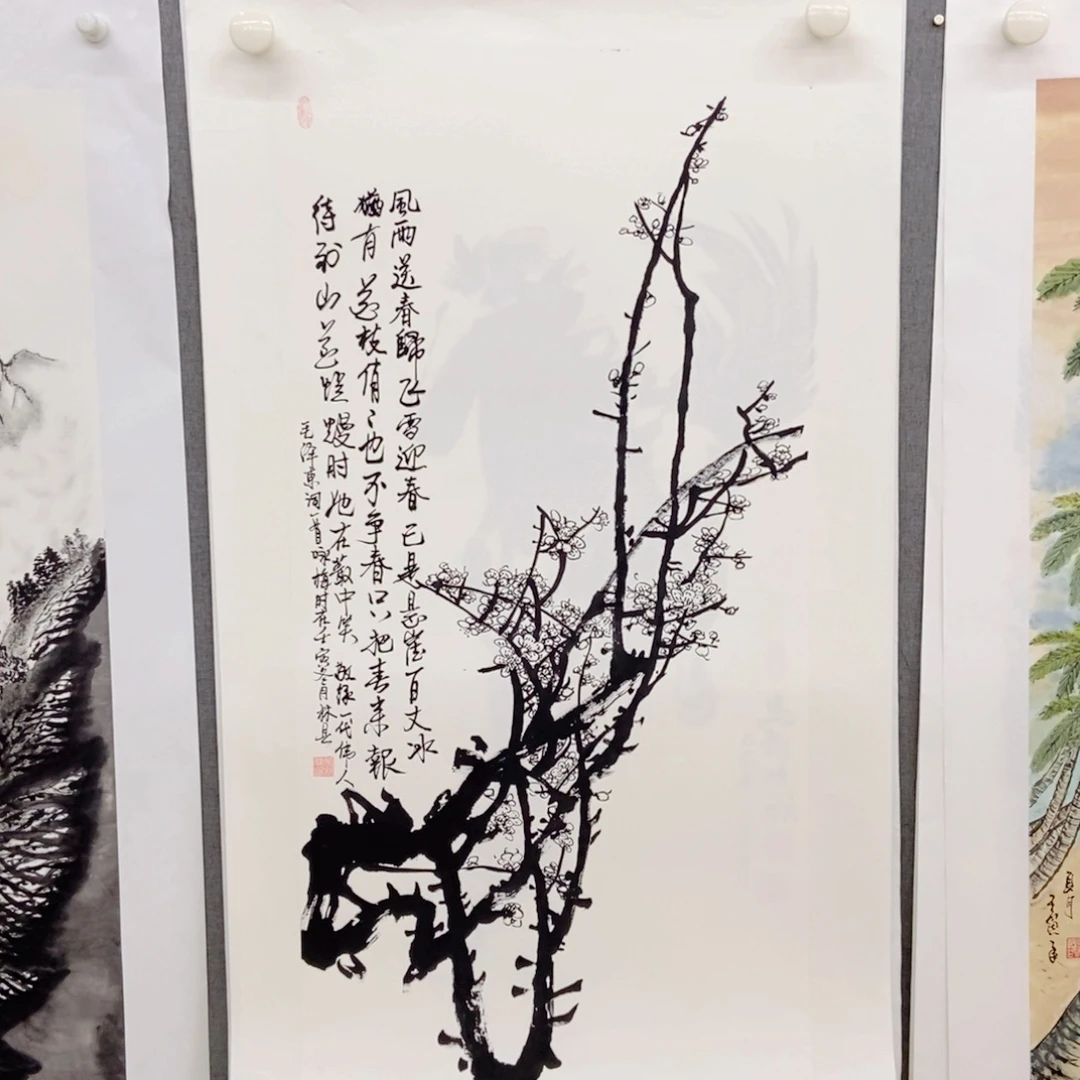 風雨送春歸飞雪迎春已是悬崖百丈冰
猶有花枝俏〻也不争春只把春来報
待到山花爛熳时她在叢中笑 敬録一代偉人
毛泽東词一首咏梅时在壬寅冬月林
夏月
壬寅年